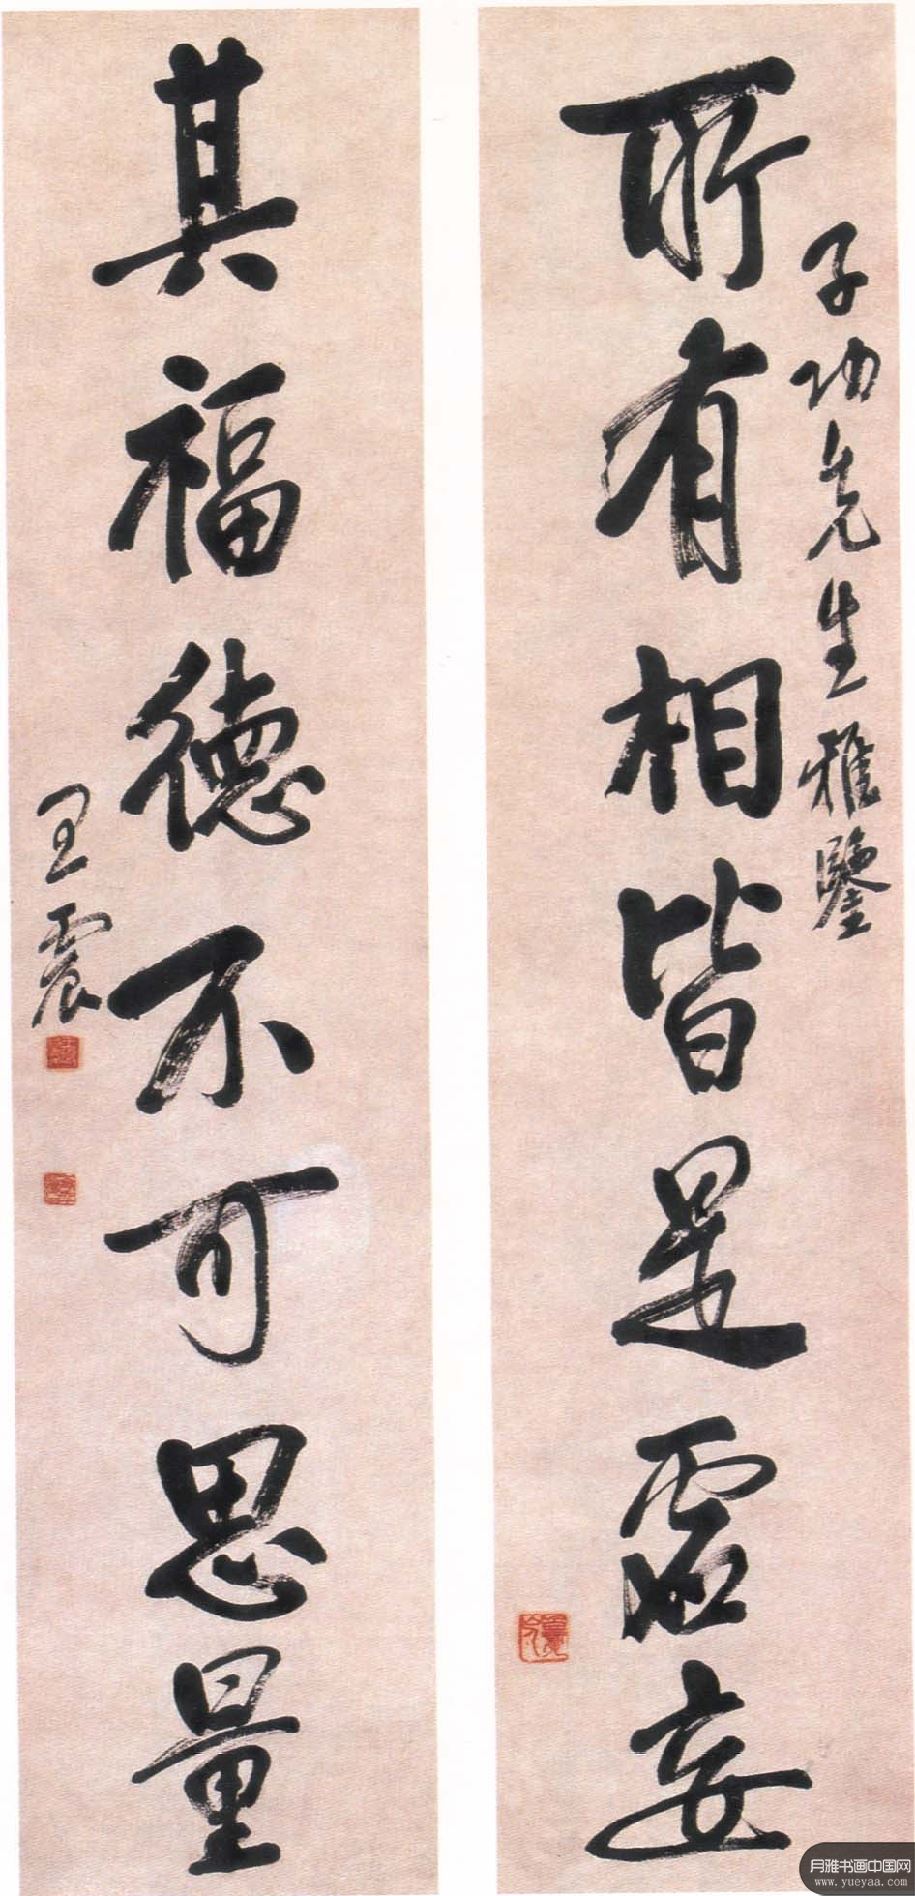 子功先生雅鑒
所有相皆是虛妄
其福德不可思量
王震
月雅书画中国网
www.yueyaa.com